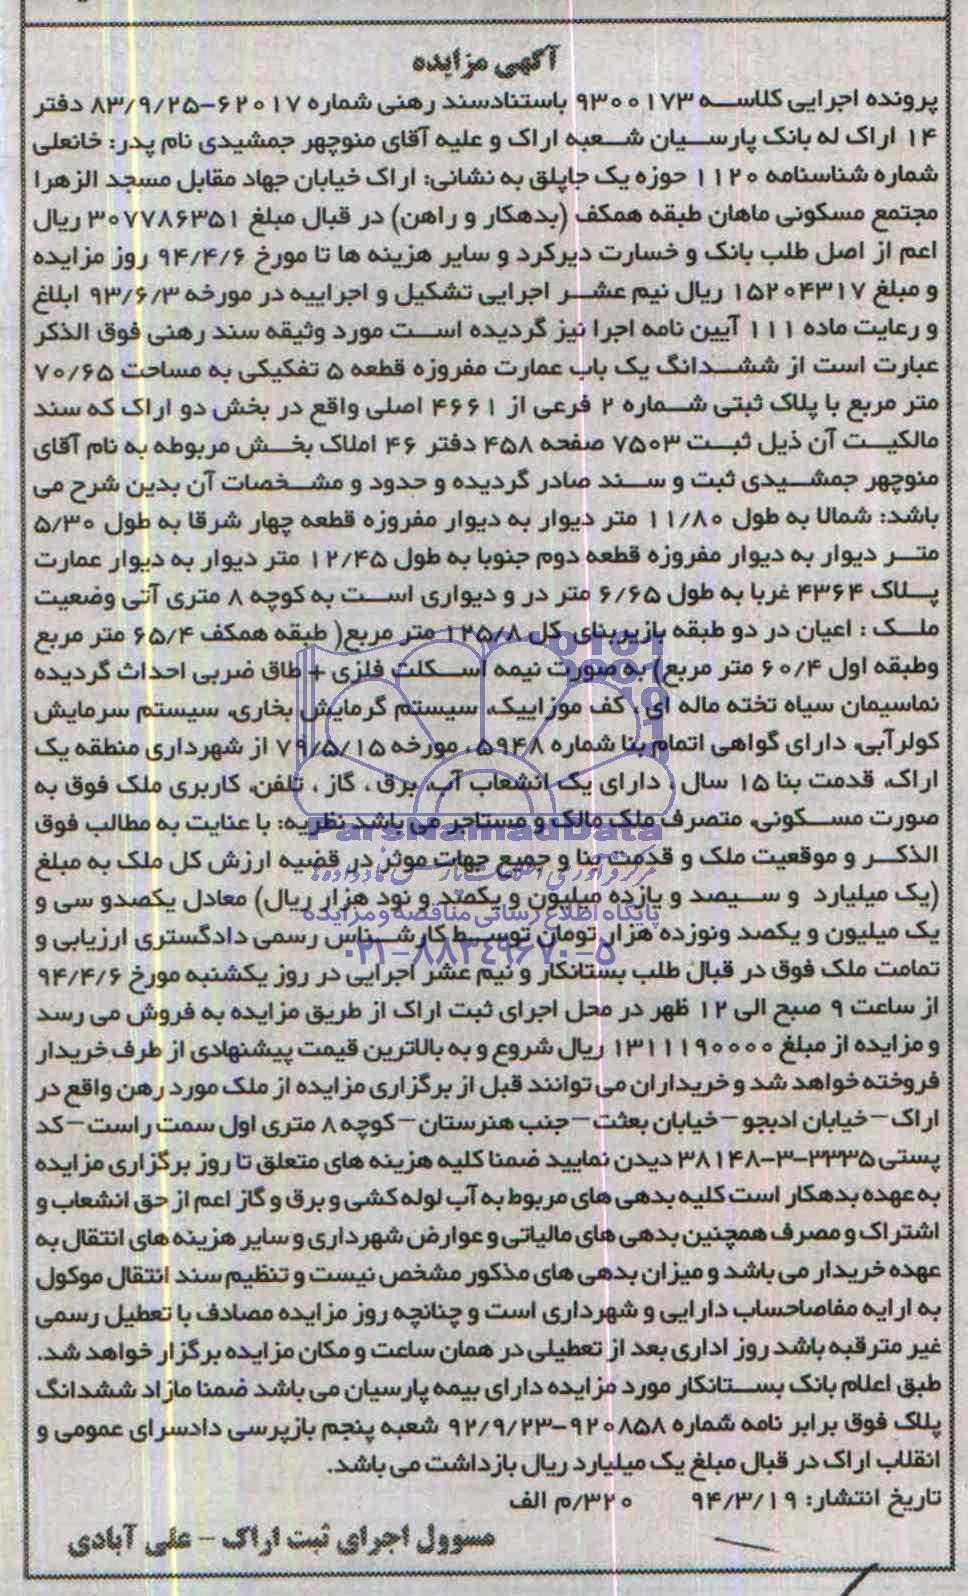 آگهی مزایده
پرونده اجرایی کلاسه ۹۳۰۰۱۷۳ باستنادسند رهنی شماره ۶۲۰۱۷-۸۳/۹/۲۵ دفتر
۱۴ اراک له بانک پارسیان شعبه اراک و علیه آقای منوچهر جمشیدی نام پدر: خانعلی
شماره شناسنامه ۱۱۲۰ حوزه یک جاپلق به نشانی: اراک خیابان جهاد مقابل مسجد الزهرا
مجتمع مسکونی ماهان طبقه همکف (بدهکار و راهن) در قبال مبلغ ۳۰۷۷۸۶۳۵۱ ریال
اعم از اصل طلب بانک و خسارت دیرکرد و سایر هزینه ها تا مورخ ۹۴/۴/۶ روز مزایده
و مبلغ ۱۵۲۰۴۳۱۷ ریال نیم عشر اجرایی تشکیل و اجراییه در مورخه ۹۳/۶/۳ ابلاغ
و رعایت ماده ۱۱۱ آیین نامه اجرا نیز گردیده است مورد وثیقه سند رهنی فوق الذکر
عبارت است از ششدانگ یک باب عمارت مفروزه قطعه ۵ تفکیکی به مساحت ۷۰/۶۵
متر مربع با پلاک ثبتی شماره ۲ فرعی از ۴۶۶۱ اصلی واقع در بخش دو اراک که سند
مالکیت آن ذیل ثبت ۷۵۰۳ صفحه ۴۵۸ دفتر ۴۶ املاک بخش مربوطه به نام آقای
منوچهر جمشیدی ثبت و سند صادر گردیده و حدود و مشخصات آن بدین شرح می
باشد: شمالا به طول ۱۱/۸۰ متر دیوار به دیوار مفروزه قطعه چهار شرقا به طول ۵/۳۰
متر دیوار به دیوار مفروزه قطعه دوم جنوبا به طول ۱۲/۴۵ متر دیوار به دیوار عمارت
پلاک ۴۳۶۴ غربا به طول ۶/۶۵ متر در و دیواری است به کوچه ۸ متری آتی وضعیت
ملک : اعیان در دو طبقه بازیربنای کل ۱۲۵/۸ متر مربع( طبقه همکف ۶۵/۴ متر مربع
وطبقه اول ۶۰/۴ متر مربع) به صورت نیمه اسکلت فلزی + طاق ضربی احداث گردیده
نماسیمان سیاه تخته ماله ای ، کف موزاییک، سیستم گرمایش بخاری، سیستم سرمایش
کولرآبی، دارای گواهی اتمام بنا شماره ۵۹۴۸ ، مورخه ۷۹/۵/۱۵ از شهرداری منطقه یک
اراک، قدمت بنا ۱۵ سال ، دارای یک انشعاب آب، برق ، گاز ، تلفن، کاربری ملک فوق به
صورت مسکونی، متصرف ملک مالک و مستاجر می باشد نظریه: با عنایت به مطالب فوق
الذکر و موقعیت ملک و قدمت بنا و جمیع جهات موثر در قضیه ارزش کل ملک به مبلغ
(یک میلیارد و سیصد و یازده میلیون و یکصد و نود هزار ریال) معادل یکصدو سی و
یک میلیون و یکصد ونوزده هزار تومان توسط کارشناس رسمی دادگستری ارزیابی و
تمامت ملک فوق در قبال طلب بستانکار و نیم عشر اجرایی در روز یکشنبه مورخ ۹۴/۴/۶
از ساعت ۹ صبح الی ۱۲ ظهر در محل اجرای ثبت اراک از طریق مزایده به فروش می رسد
و مزایده از مبلغ ۱۳۱۱۱۹۰۰۰۰ ریال شروع و به بالاترین قیمت پیشنهادی از طرف خریدار
فروخته خواهد شد و خریداران می توانند قبل از برگزاری مزایده از ملک مورد رهن واقع در
اراک – خیابان ادبجو – خیابان بعثت – جنب هنرستان – کوچه ۸ متری اول سمت راست – کد
پستی ۳۳۳۵-۳-۳۸۱۴۸ دیدن نمایید ضمنا کلیه هزینه های متعلق تا روز برگزاری مزایده
به عهده بدهکار است کلیه بدهی های مربوط به آب لوله کشی و برق و گاز اعم از حق انشعاب و
اشتراک و مصرف همچنین بدهی های مالیاتی و عوارض شهرداری و سایر هزینه های انتقال به
عهده خریدار می باشد و میزان بدهی های مذکور مشخص نیست و تنظیم سند انتقال موکول
به ارایه مفاصاحساب دارایی و شهرداری است و چنانچه روز مزایده مصادف با تعطیل رسمی
غیر مترقبه باشد روز اداری بعد از تعطیلی در همان ساعت و مکان مزایده برگزار خواهد شد.
طبق اعلام بانک بستانکار مورد مزایده دارای بیمه پارسیان می باشد ضمنا مازاد ششدانگ
پلاک فوق برابر نامه شماره ۹۲۰۸۵۸-۹۲/۹/۲۳ شعبه پنجم بازپرسی دادسرای عمومی و
انقلاب اراک در قبال مبلغ یک میلیارد ریال بازداشت می باشد.
تاریخ انتشار: ۹۴/۳/۱۹ ۳۲۰/م الف
مسوول اجرای ثبت اراک – علی آبادی
ParsNamadData
پایگاه اطلاع رسانی مناقصه و مزایده
۰۲۱-۸۸۳۴۹۶۷۰-۵